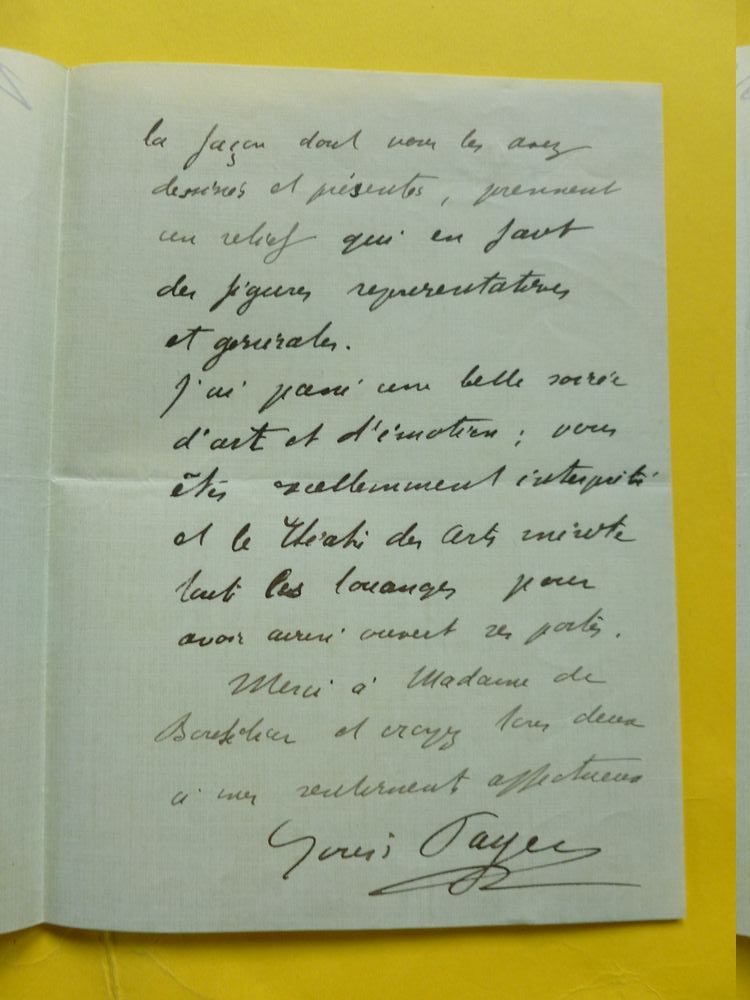 la façon dont vous les avez
dessinés et présentés, prennent
un relief qui en font
des figures représentatives
et generales.
J'ai passé une belle soirée
d'art et d'émotion ; vous
êtes excellemment interprété
et le Théatre des Arts mérite
tout les louanges pour
avoir ainsi ouvert ses portes.
Merci à Madame de
et croyez tous deux
à mes sentiment affectueux
Payen